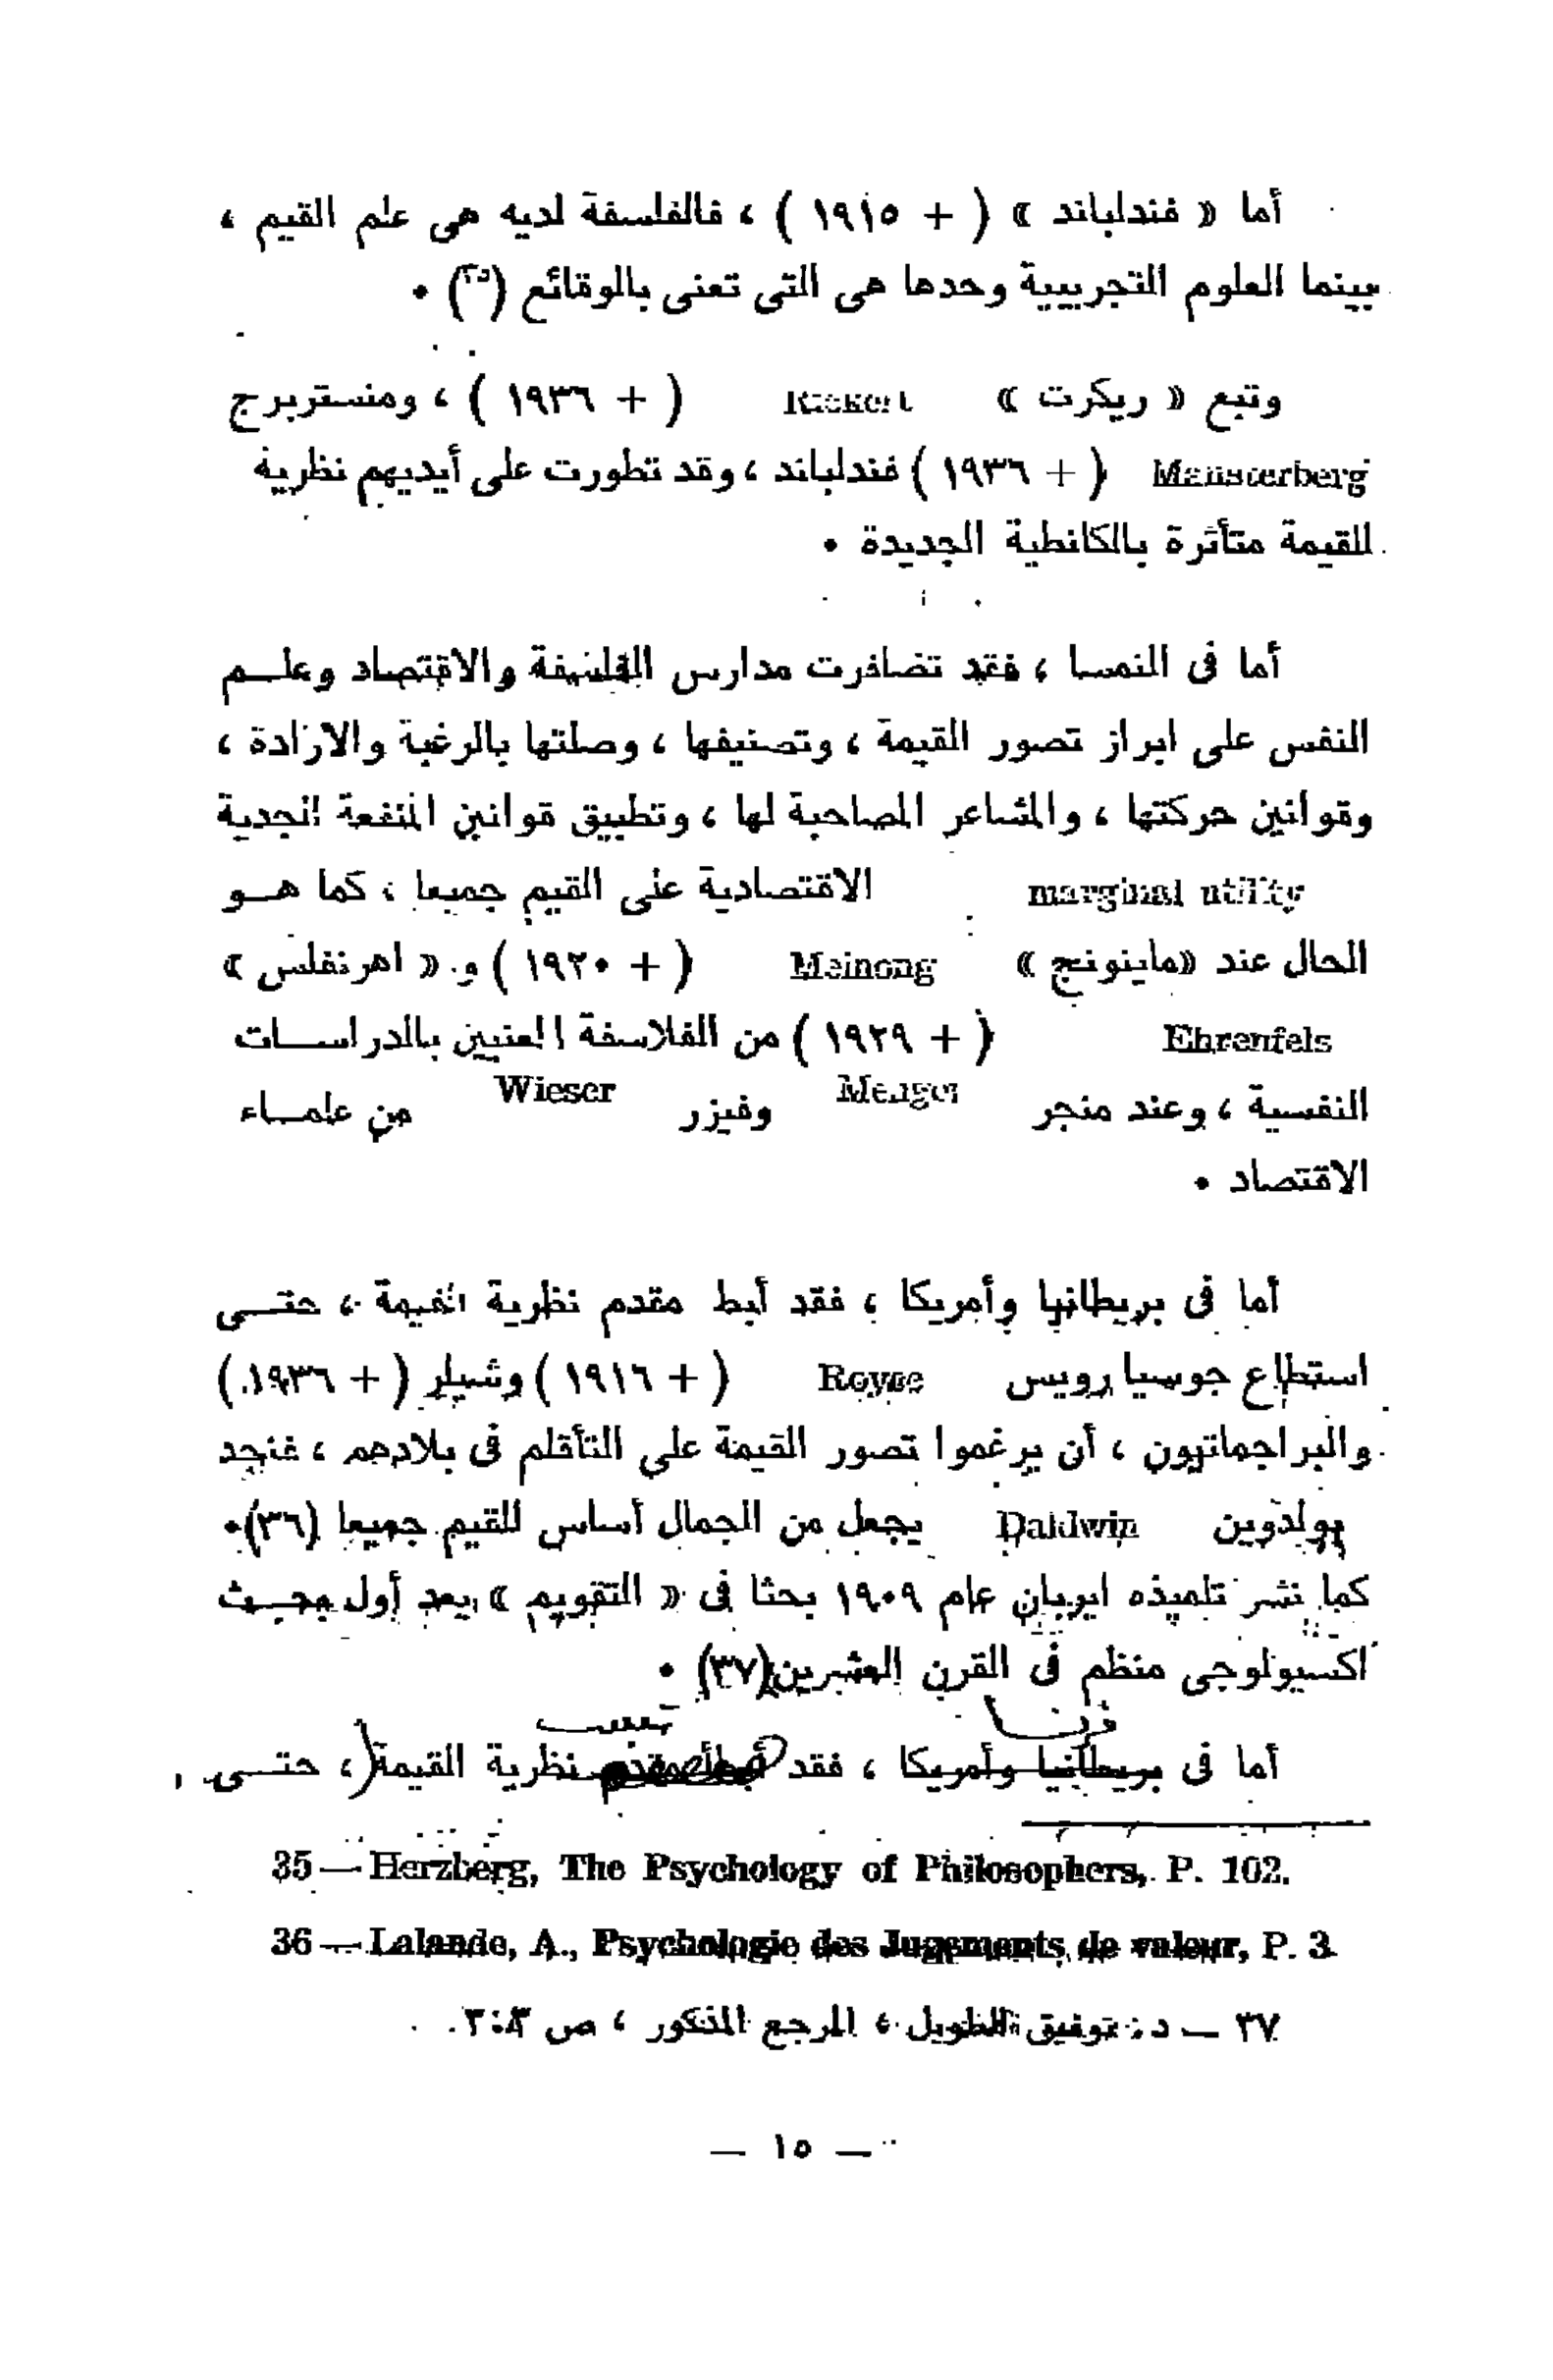 أما « فندلباند » ( + ١٩١٥ ) ، فالفلسفة لديه هى علم القيم ،
بينما العلوم التجريبية وحدها هى التى تعنى بالوقائع (٣٥) •
وتبع « ريكرت » Rickert ( + ١٩٣٦ ) ، ومنستربرج
Maunsterberg ( + ١٩٣٦ ) فندلباند ، وقد تطورت على أيديهم نظرية
القيمة متأثرة بالكانطية الجديدة •
أما فى النمسا ، فقد تضافرت مدارس الفلسفة والاقتصاد وعلـــم
النفس على ابراز تصور القيمة ، وتصنيفها ، وصلتها بالرغبة والارادة ،
وقوانين حركتها ، والمشاعر المصاحبة لها ، وتطبيق قوانين المنفعة الجدية
marginal utility الاقتصادية على القيم جميعا ، كما هــو
الحال عند «ماينونج » Meinong ( + ١٩٢٠ ) و « اهرنفلس »
Ehrenfels ( + ١٩٢٩ ) من الفلاسفة المعنيين بالدراســات
النفسية ، وعند منجر Menger وفيزر Wieser من علمــاء
الاقتصاد •
أما فى بريطانيا وأمريكا ، فقد أبط مقدم نظرية القيمة ، حتــى
استطاع جوسيا رويس Royce ( + ١٩١٦ ) وشيلر ( + ١٩٣٦ )
والبراجماتيون ، أن يرغموا تصور القيمة على التأقلم فى بلادهم ، فنجد
بولدوين Baldwin يجعل من الجمال أساس للقيم جميعا (٣٦)•
كما نشر تلميذه ايربان عام ١٩٠٩ بحثا فى « التقويم » يعد أول بحــث
اكسيولوجى منظم فى القرن العشرين(٣٧) •
أما فى بريطانيا وأمريكا ، فقد أبطأ مقدم نظرية القيمة ، حتــى
35 — Herzberg, The Psychology of Philosophers, P. 102.
36 — Lalande, A., Psychologie des Jugements de valeur, P. 3
٣٧ — د. توفيق الطويل ، المرجع المذكور ، ص
— ١٥ —